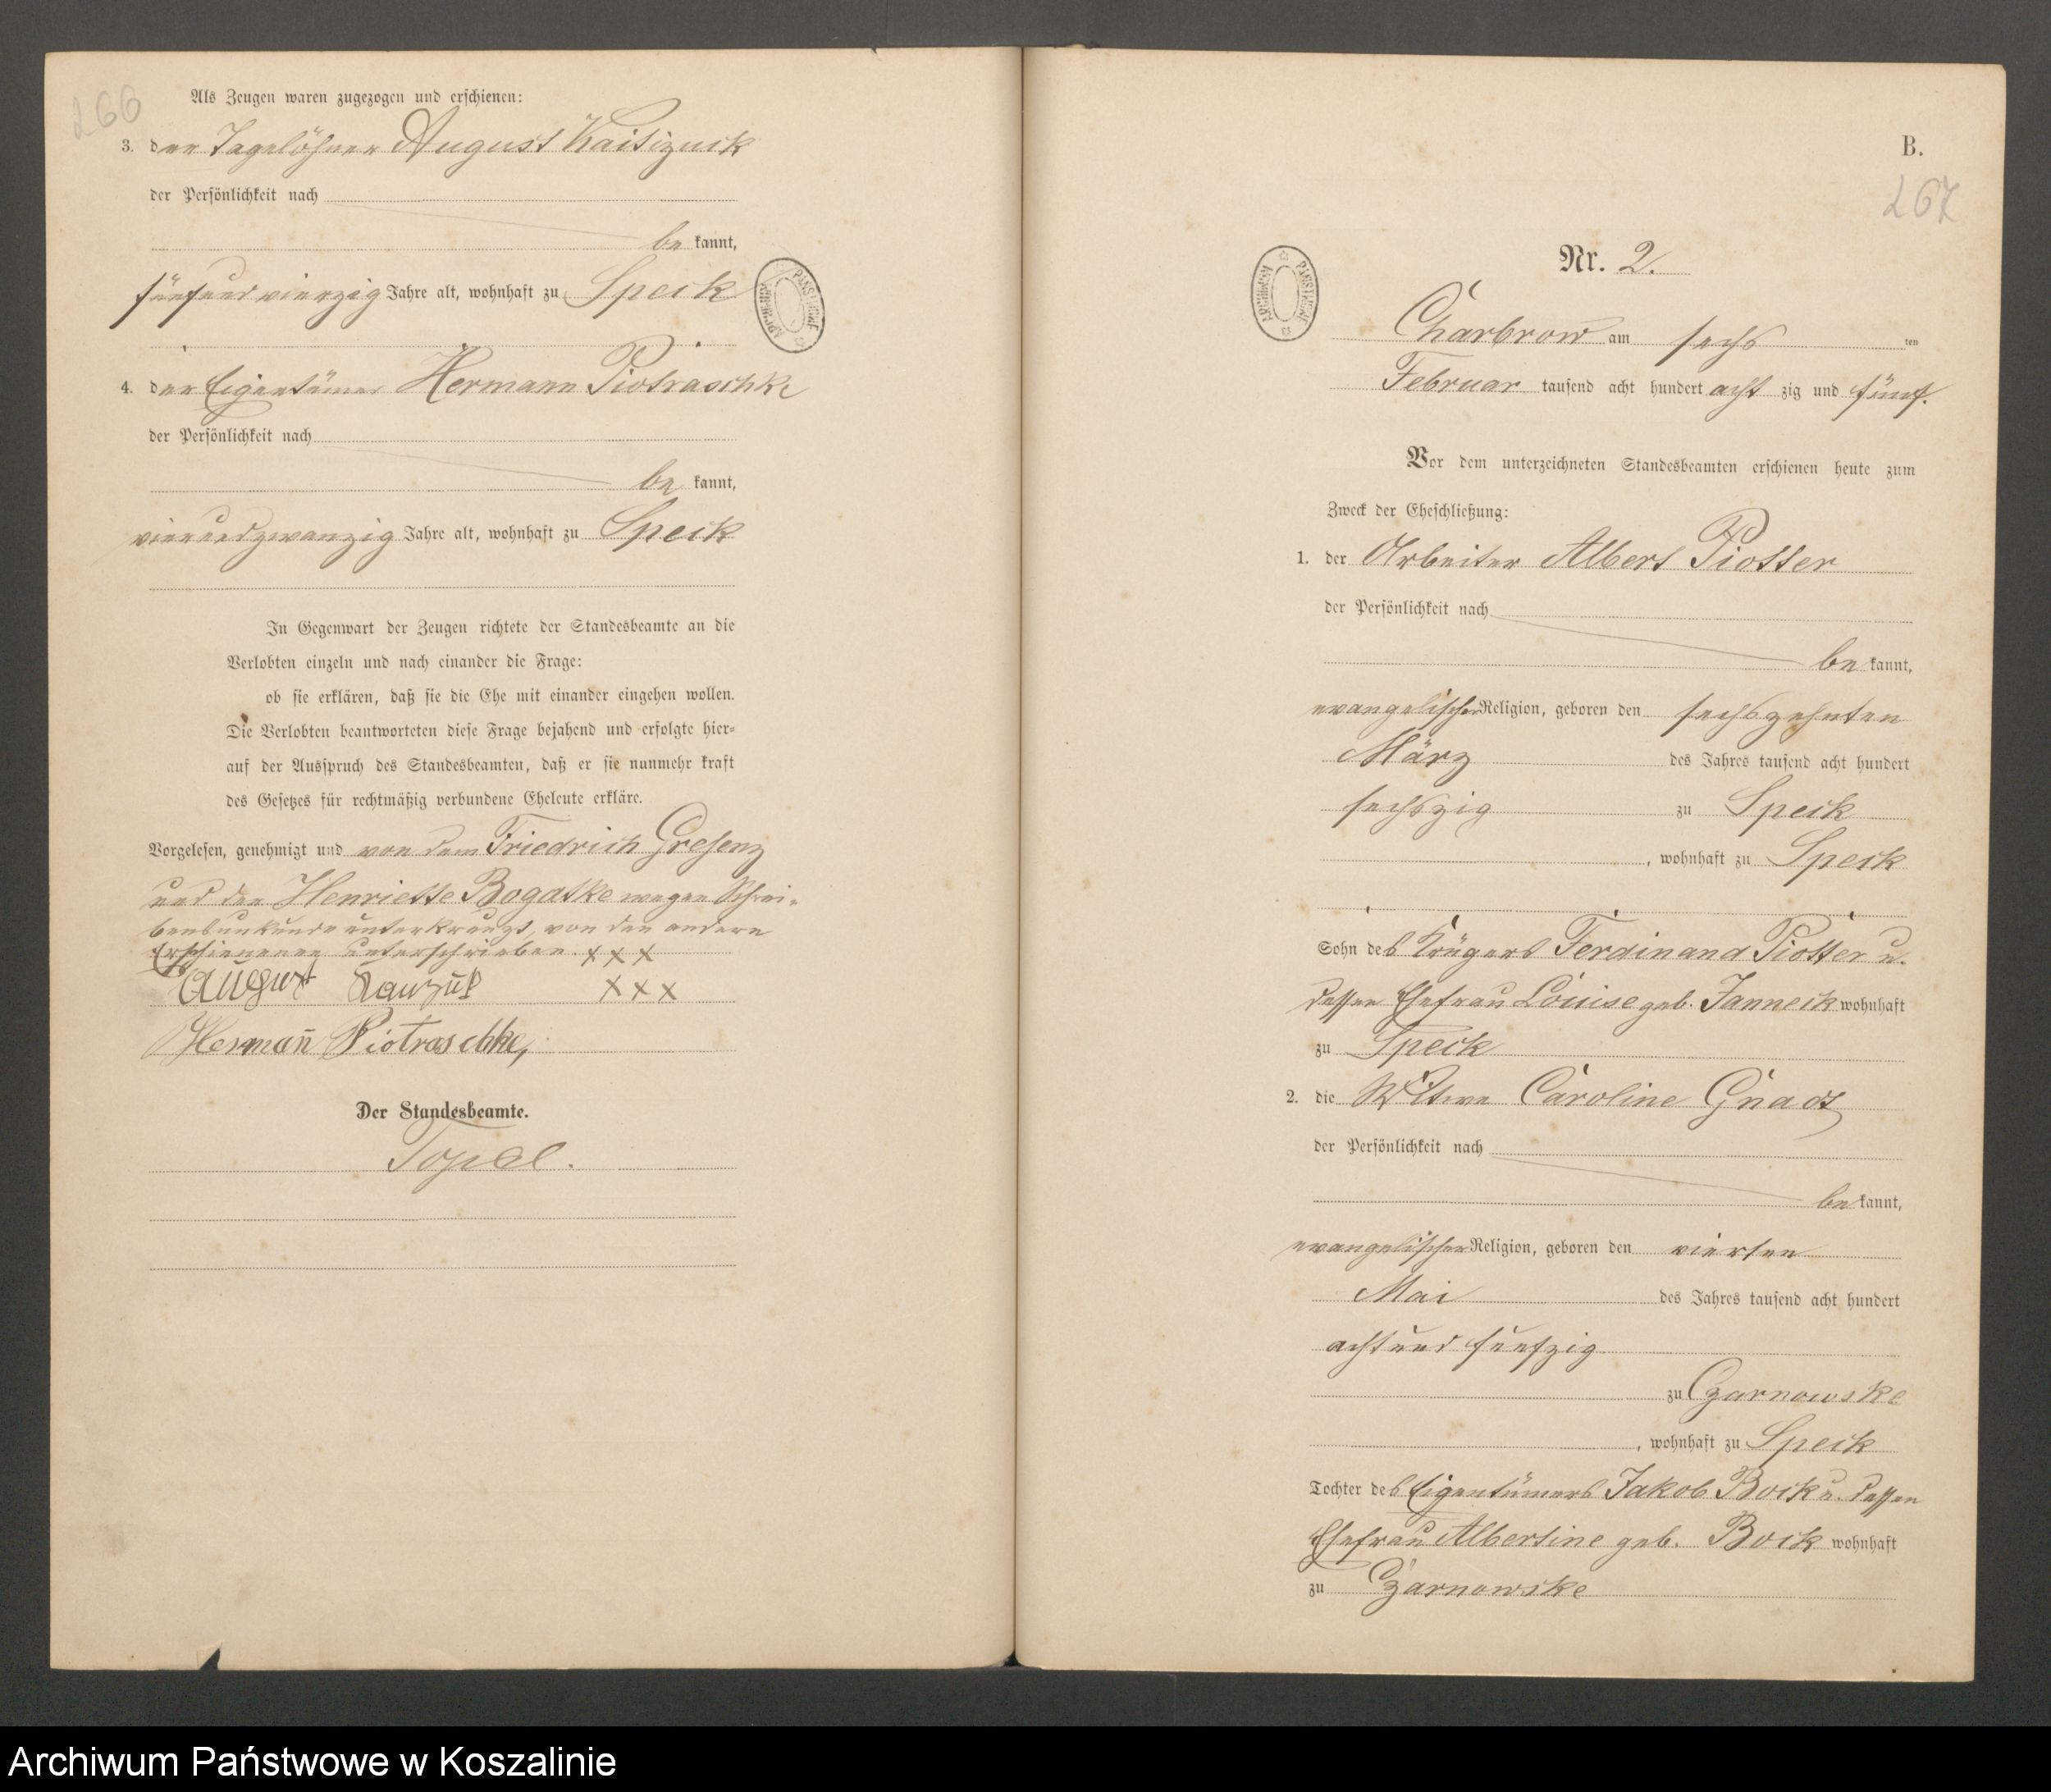 266
Als Zeugen waren zugezogen und erschienen:
3. der Tagelöhner August Kaitizuck
der Persönlichkeit nach
be kannt,
fünfundvierzig Jahre alt, wohnhaft zu Speck
4. der Eigentümer Hermann Piotraschke
der Persönlichkeit nach
be kannt,
vierundzwanzig Jahre alt, wohnhaft zu Speck
In Gegenwart der Zeugen richtete der Standesbeamte an die
Verlobten einzeln und nach einander die Frage:
ob sie erklären, daß sie die Ehe mit einander eingehen wollen.
Die Verlobten beantworteten diese Frage bejahend und erfolgte hier-
auf der Ausspruch des Standesbeamten, daß er sie nunmehr kraft
des Gesetzes für rechtmäßig verbundene Eheleute erkläre.
Vorgelesen, genehmigt und von dem Friedrich Gresenz
und der Henriette Bogatke wegen Schrei-
bensunkunde unterkreuzt, von den andern
Erschienenen unterschrieben. XXX
August XXX
Hermann Piotraschke,
Der Standesbeamte.
Topel.
ARCHIWUM PAŃSTWOWE
B.
267
Nr. 2.
ARCHIWUM PAŃSTWOWE
Charbrow am sechs ten
Februar tausend acht hundert acht zig und fünf.
Vor dem unterzeichneten Standesbeamten erschienen heute zum
Zweck der Eheschließung:
1. der Arbeiter Albert Piotter
der Persönlichkeit nach
be kannt,
evangelischer Religion, geboren den sechszehnten
März des Jahres tausend acht hundert
sechszig zu Speck
, wohnhaft zu Speck
Sohn des Krügers Ferdinand Piotter u.
dessen Ehefrau Louise geb. Janneck wohnhaft
zu Speck
2. die Witwe Caroline Gnadt
der Persönlichkeit nach
be kannt,
evangelischer Religion, geboren den vierten
Mai des Jahres tausend acht hundert
achtund fünfzig
zu Czarnowske
, wohnhaft zu Speck
Tochter des Eigentümers Jakob Bock u. dessen
Ehefrau Albertine geb. Bock wohnhaft
zu Czarnowske
Archiwum Państwowe w Koszalinie